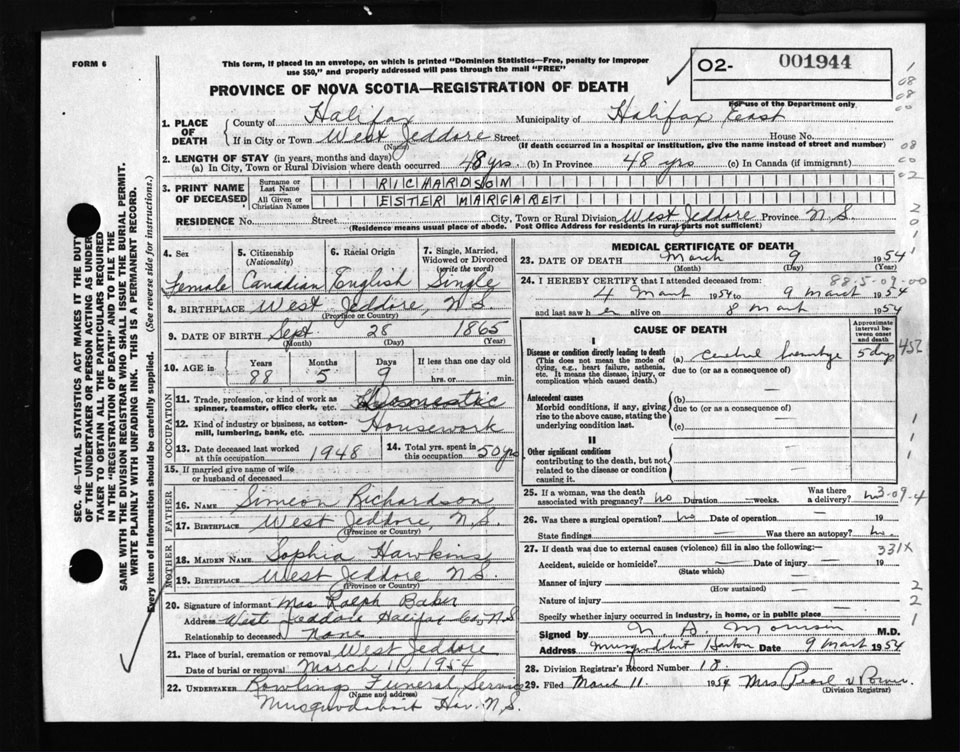 FORM 6
This form, if placed in an envelope, on which is printed "Dominion Statistics—Free, penalty for improper
use $50," and properly addressed will pass through the mail "FREE"
02- 001944
PROVINCE OF NOVA SCOTIA—REGISTRATION OF DEATH
For use of the Department only.
1. PLACE OF DEATH
County of Halifax Municipality of Halifax East
If in City or Town West Jeddore Street House No.
(Name) (If death occurred in a hospital or institution, give the name instead of street and number)
2. LENGTH OF STAY (in years, months and days)
(a) In City, Town or Rural Division where death occurred 48 yrs. (b) In Province 48 yrs (c) In Canada (if immigrant)
3. PRINT NAME OF DECEASED
Surname or Last Name RICHARDSON
All Given or Christian Names ESTER MARGARET
RESIDENCE No. Street City, Town or Rural Division West Jeddore Province N.S.
(Residence means usual place of abode. Post Office Address for residents in rural parts not sufficient)
4. Sex Female
5. Citizenship (Nationality) Canadian
6. Racial Origin English
7. Single, Married, Widowed or Divorced (write the word) Single
8. BIRTHPLACE West Jeddore, N.S.
(Province or Country)
9. DATE OF BIRTH Sept 28 1865
(Month) (Day) (Year)
10. AGE in Years 88 Months 5 Days 9 If less than one day
hrs. or min.
OCCUPATION
11. Trade, profession, or kind of work as
spinner, teamster, office clerk, etc.
12. Kind of industry or business, as cotton-
mill, lumbering, bank, etc. Housework
13. Date deceased last worked at this occupation 1948
14. Total yrs. spent in this occupation 50 yrs
15. If married give name of wife
or husband of deceased
FATHER
16. NAME Simeon Richardson
17. BIRTHPLACE West Jeddore, N.S.
(Province or Country)
MOTHER
18. MAIDEN NAME Sophia Hawkins
19. BIRTHPLACE West Jeddore N.S.
(Province or Country)
20. Signature of informant Mrs Ralph Baker
Address West Jeddore Halifax Co, N.S
Relationship to deceased None
21. Place of burial, cremation or removal West Jeddore
Date of burial or removal March 11, 1954
22. UNDERTAKER Rowlings Funeral Service
(Name and address)
Musquodoboit Har. N.S.
MEDICAL CERTIFICATE OF DEATH
23. DATE OF DEATH March 9 1954
(Month) (Day) (Year)
88-5-09-00
24. I HEREBY CERTIFY that I attended deceased from:
4 March 1954 to 9 March 1954
and last saw her alive on 8 March 1954
CAUSE OF DEATH
Approximate interval between onset and death
I
Disease or condition directly leading to death
(This does not mean the mode of dying, e.g., heart failure, asthenia, etc. It means the disease, injury, or complication which caused death.)
(a) Cerebral hemorrhage 5 days
due to (or as a consequence of)
Antecedent causes
Morbid conditions, if any, giving rise to the above cause, stating the underlying condition last.
(b)
due to (or as a consequence of)
(c)
II
Other significant conditions
contributing to the death, but not related to the disease or condition causing it.
25. If a woman, was the death associated with pregnancy? no Duration weeks. Was there a delivery?
26. Was there a surgical operation? no Date of operation 19
State findings Was there an autopsy? no.
27. If death was due to external causes (violence) fill in also the following:— 331X
Accident, suicide or homicide? Date of injury 19
(State which)
Manner of injury
(How sustained)
Nature of injury
Specify whether injury occurred in industry, in home, or in public place
Signed by M.D.
Address Musquodoboit Harbour Date 9 March 1954
28. Division Registrar's Record Number 18
29. Filed March 11. 1954 Mrs Pearl
(Division Registrar)
SEC. 46—VITAL STATISTICS ACT MAKES IT THE DUTY
OF THE UNDERTAKER OR PERSON ACTING AS UNDER-
TAKER TO OBTAIN ALL THE PARTICULARS REQUIRED
IN THE "REGISTRATION OF DEATH" AND TO FILE THE
SAME WITH THE DIVISION REGISTRAR WHO SHALL ISSUE THE BURIAL PERMIT.
WRITE PLAINLY WITH UNFADING INK. THIS IS A PERMANENT RECORD.
Every item of information should be carefully supplied. (See reverse side for instructions.)